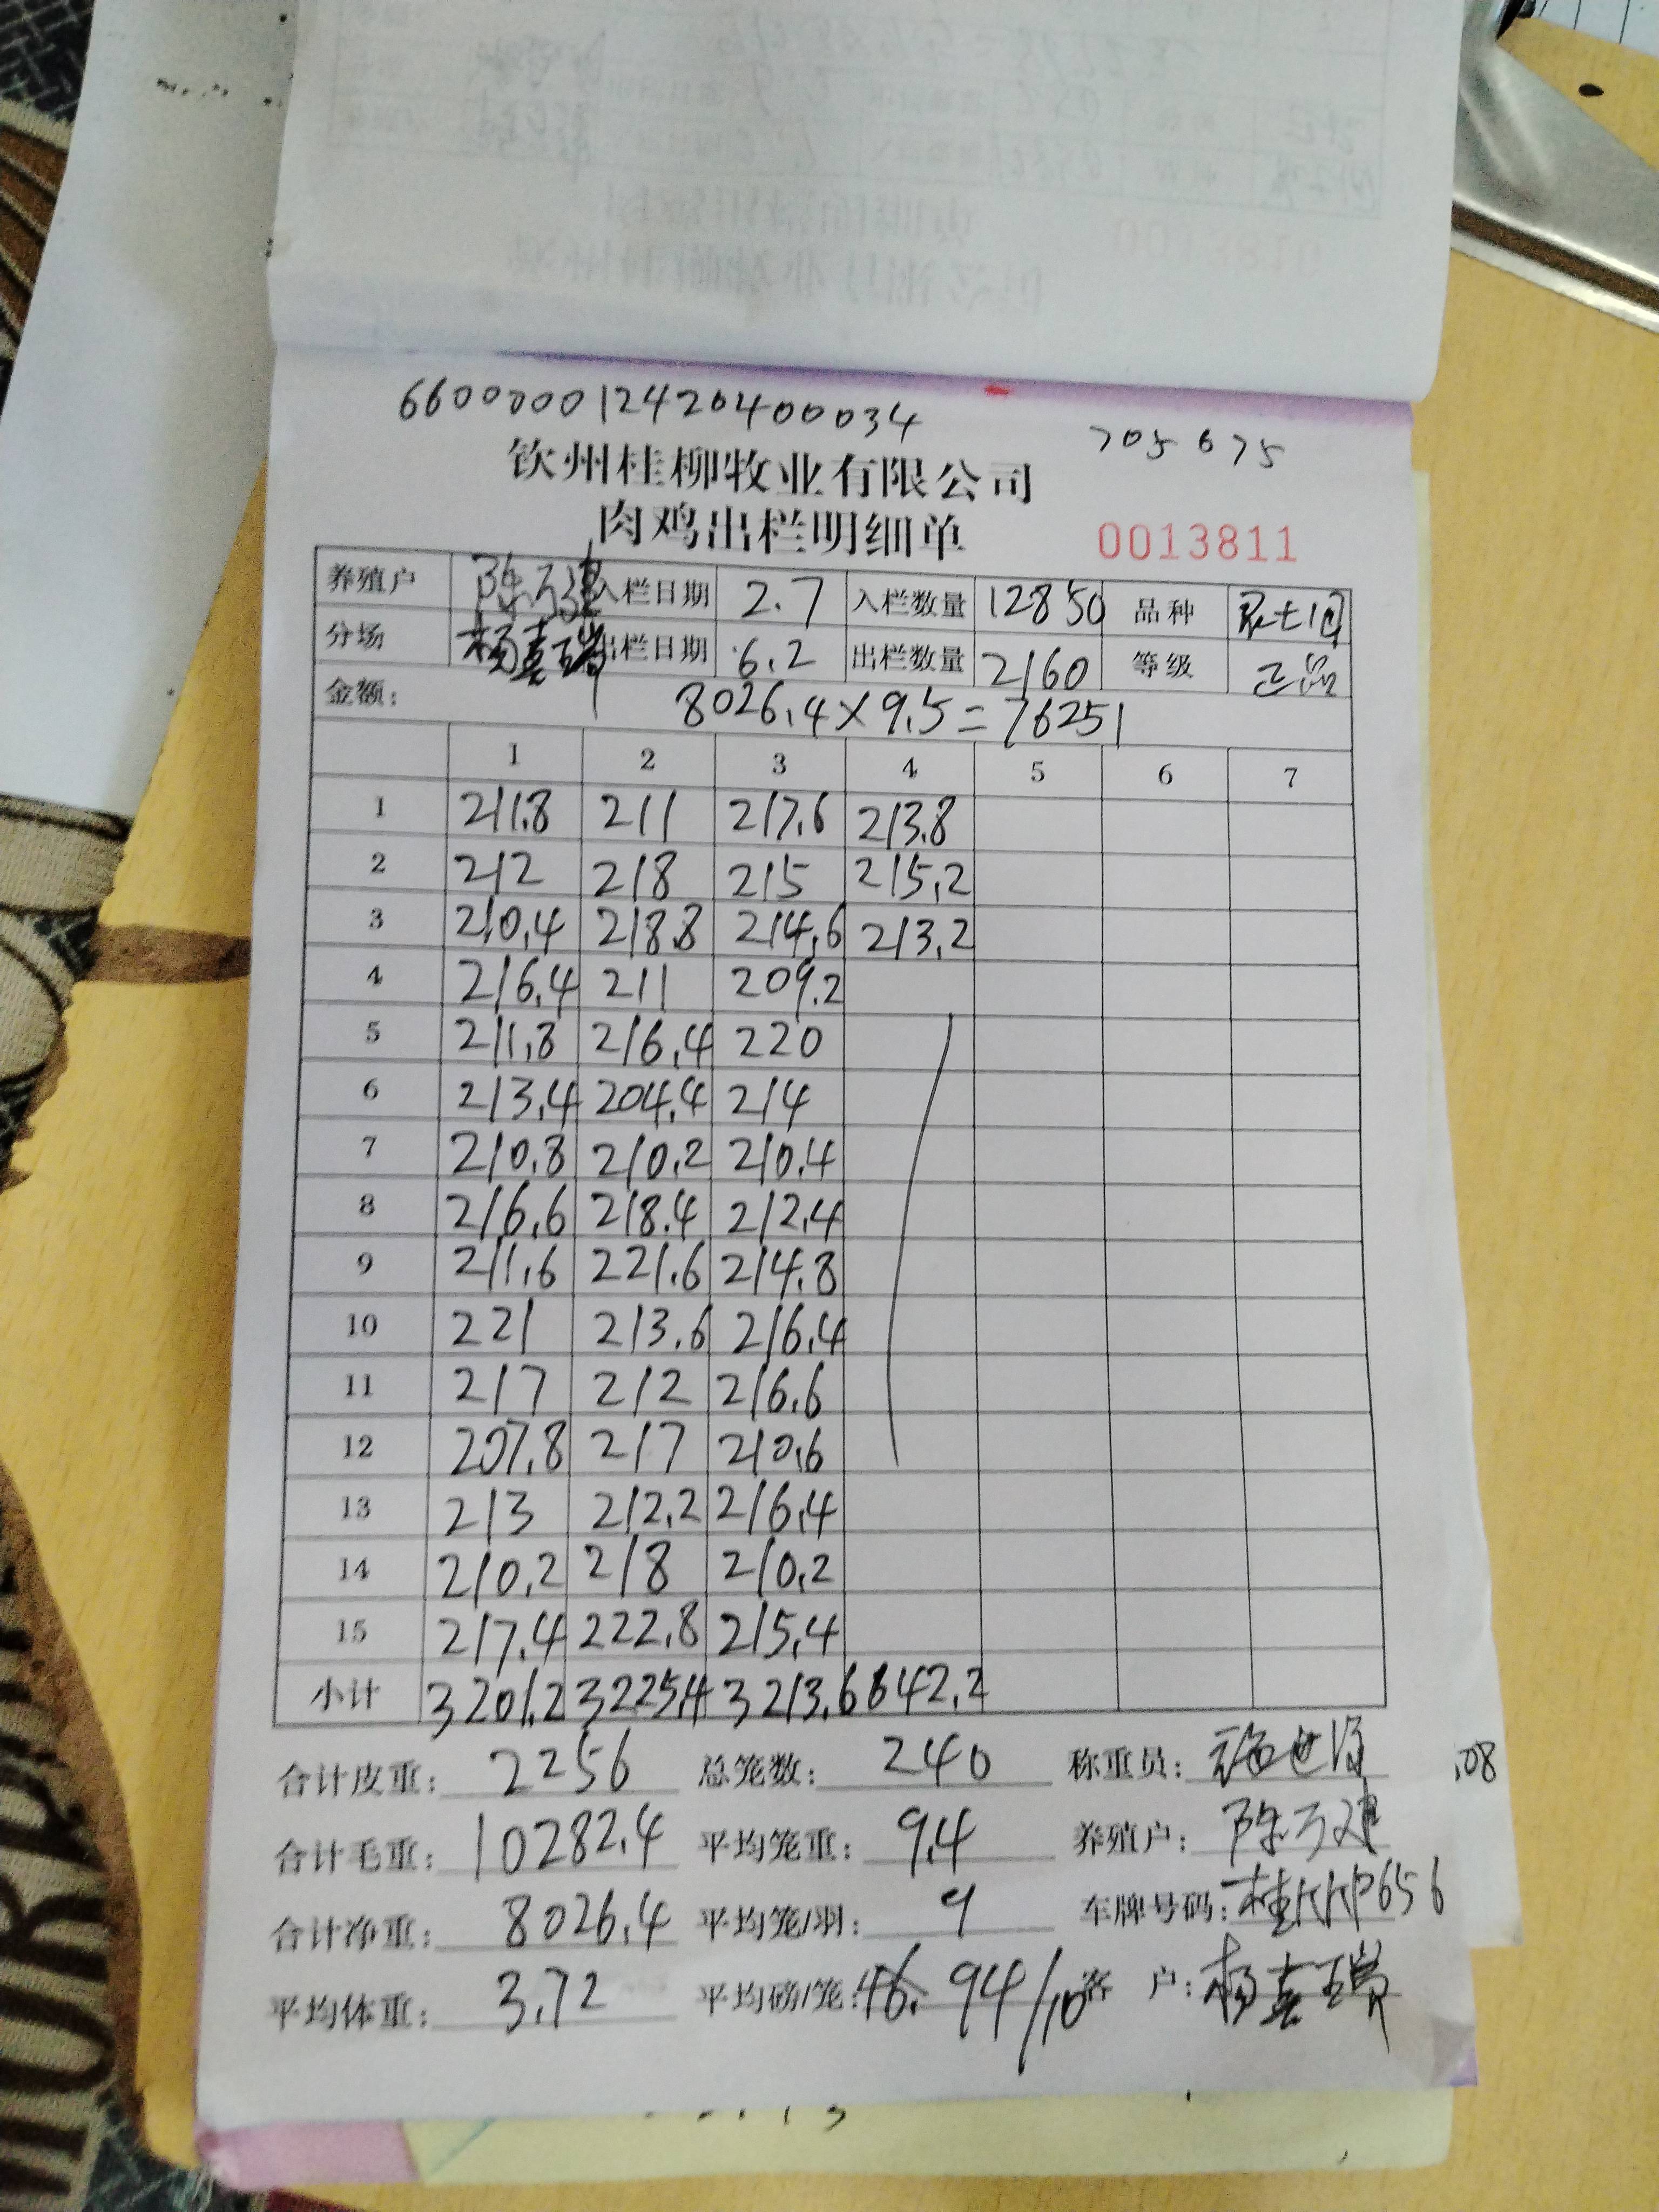 660000012420400034
705675
钦州桂柳牧业有限公司
肉鸡出栏明细单 0013811
养殖户 陈万建 入栏日期 2.7 入栏数量 12850 品种
分场 杨嘉瑞 出栏日期 6.2 出栏数量 2160 等级 正品
金额： 8026.4×9.5=76251
1 2 3 4 5 6 7
1 211.8 211 217.6 213.8
2 212 218 215 215.2
3 210.4 218.8 214.6 213.2
4 216.4 211 209.2
5 211.8 216.4 220
6 213.4 204.4 214
7 210.8 210.2 210.4
8 216.6 218.4 212.4
9 211.6 221.6 214.8
10 221 213.6 216.4
11 217 212 216.6
12 207.8 217 210.6
13 213 212.2 216.4
14 210.2 218 210.2
15 217.4 222.8 215.4
小计 3201.2 3225.4 3213.6 642.2
合计皮重： 2256 总笼数： 240 称重员：
合计毛重： 10282.4 平均笼重： 9.4 养殖户： 陈万建
合计净重： 8026.4 平均笼/羽： 9 车牌号码： 桂KKP656
平均体重： 3.72 平均磅/笼： 46.94/10 客 户： 杨嘉瑞
.08